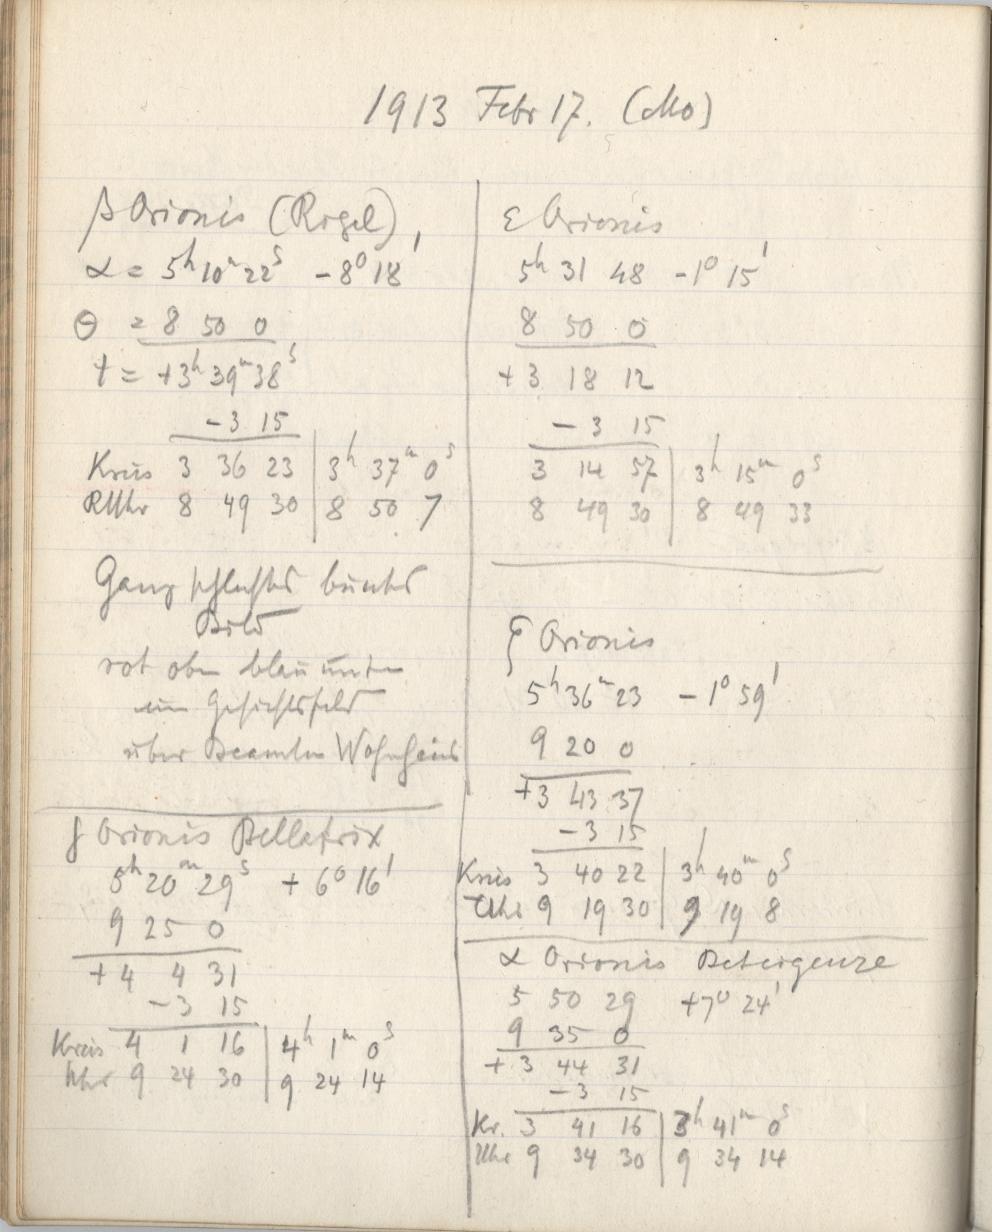 1913 Febr 17. (Mo)
β Orionis (Rigel)
α = 5h 10m 22s - 8° 18'
Θ = 8 50 0
t = +3h 39m 38s
- 3 15
Kreis 3 36 23 | 3h 37m 0s
RUhr 8 49 30 | 8 50 7
Ganz schlechtes buntes
Bild
rot oben blau unten
im Gesichtsfeld
über Beamten Wohnhaus
γ Orionis Bellatrix
5h 20m 29s + 6° 16'
9 25 0
+ 4 4 31
- 3 15
Kreis 4 1 16 | 4h 1m 0s
Uhr 9 24 30 | 9 24 14
ε Orionis
5h 31 48 - 1° 15'
8 50 0
+ 3 18 12
- 3 15
3 14 57 | 3h 15m 0s
8 49 30 | 8 49 33
ζ Orionis
5h 36m 23 - 1° 59'
9 20 0
+3 43 37
- 3 15
Kreis 3 40 22 | 3h 40m 0s
Uhr 9 19 30 | 9 19 8
α Orionis Beteigeuze
5 50 29 +7° 24'
9 35 0
+ 3 44 31
- 3 15
Kr. 3 41 16 | 3h 41m 0s
Uhr 9 34 30 | 9 34 14